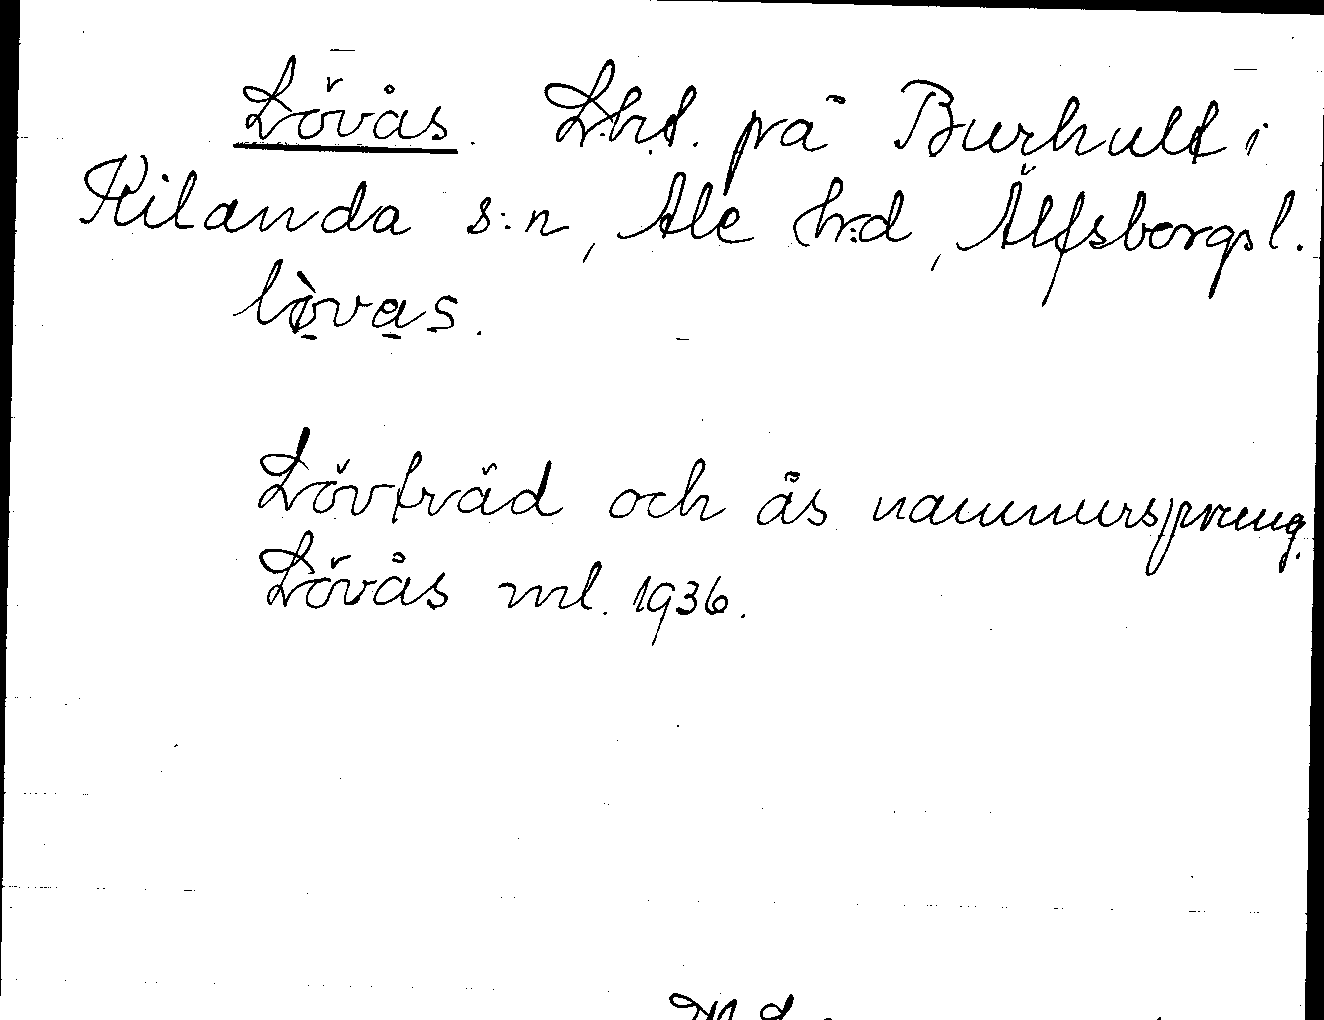 Lövås. L.h.t. på Burhult i
Kilanda s:n, Ale h:d, Älfsborgs l.
lòvas.
Lövträd och ås namnursprung.
Lövås ml. 1936.